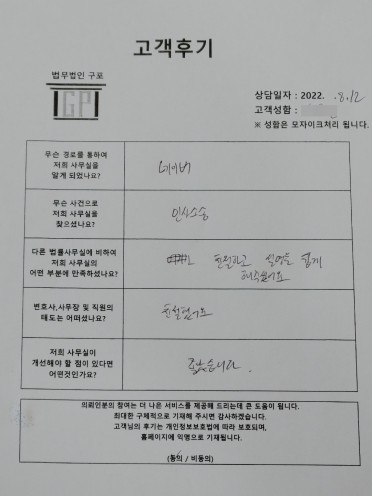 고객후기
법무법인 구포
GP
상담일자 : 2022. .8.12
고객성함 :
※ 성함은 모자이크처리 됩니다.
무슨 경로를 통하여
저희 사무실을
알게 되었나요?
네이버
무슨 사건으로
저희 사무실을
찾으셨나요?
민사소송
다른 법률사무실에 비하여
저희 사무실의
어떤 부분에 만족하셨나요?
친절하고 설명을 쉽게
해주셨어요
변호사,사무장 및 직원의
태도는 어떠셨나요?
친절했어요
저희 사무실이
개선해야 할 점이 있다면
어떤것인가요?
좋았습니다.
의뢰인분의 참여는 더 나은 서비스를 제공해 드리는데 큰 도움이 됩니다.
최대한 구체적으로 기재해 주시면 감사하겠습니다.
고객님의 후기는 개인정보보호법에 따라 보호되며,
홈페이지에 익명으로 기재됩니다.
(동의 / 비동의)